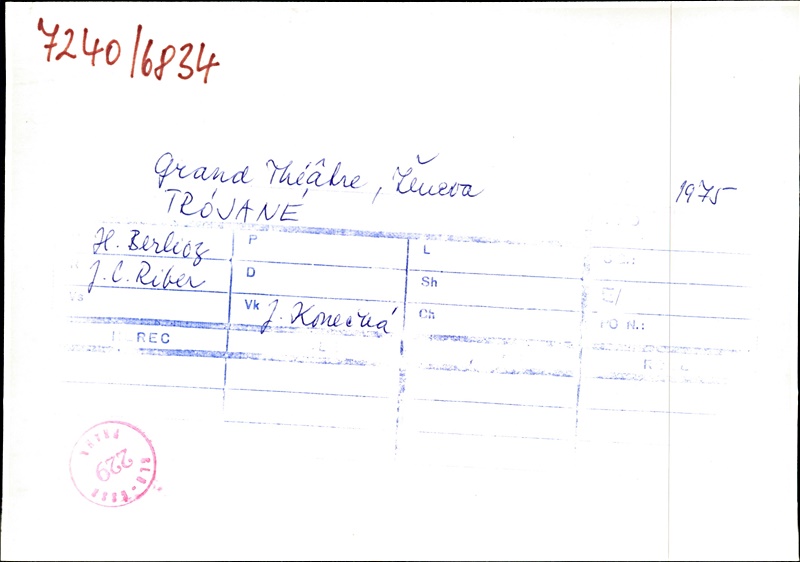 7240/6834
Grand Théâtre, Ženeva 1975
TRÓJANÉ
H. Berlioz P L
J. C. Riber D Sh
Vk J. Konečná Ch
REC
229